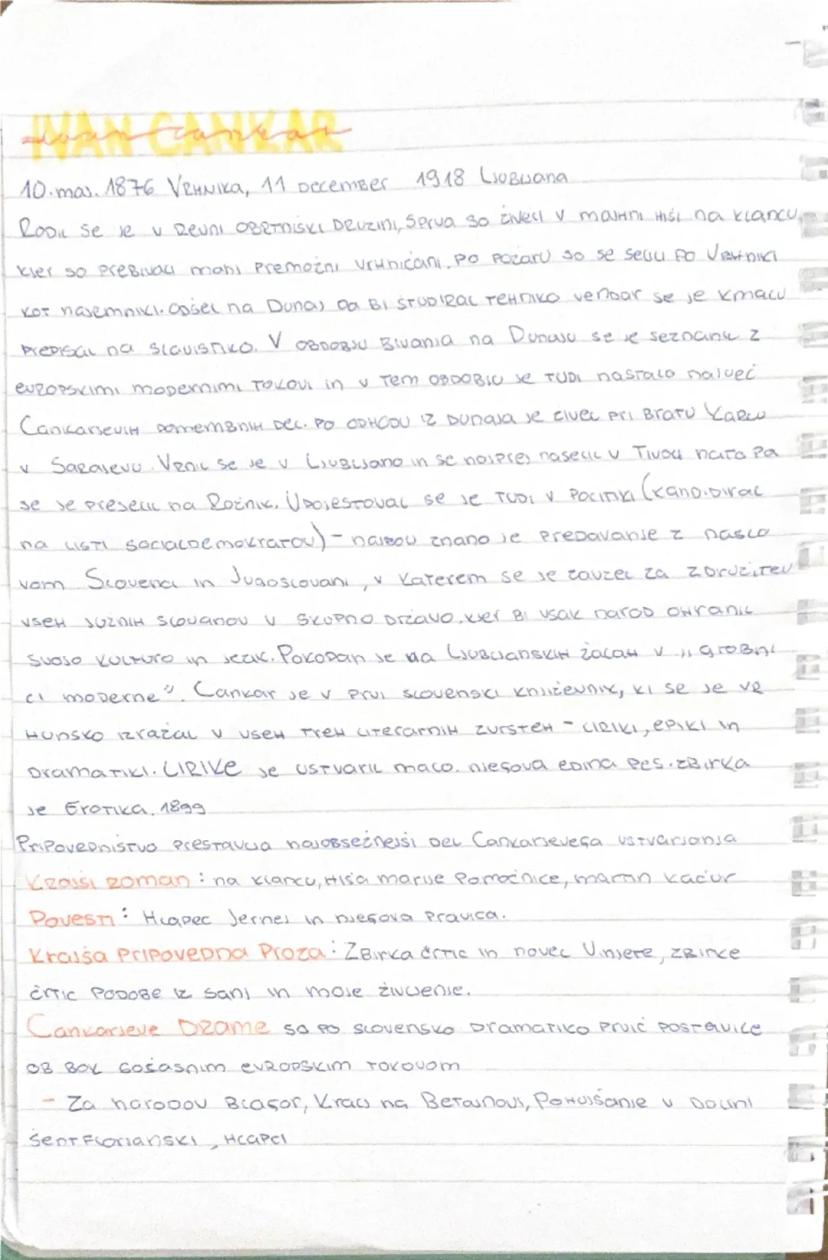 IVAN CANKAR
10. maj. 1876 Vrhnika, 11 december 1918 Ljubljana
Rodil se je v revni obrtniški družini, sprva so živeli v majhni hiši na klancu,
kjer so prebivali manj premožni vrhničani. Po požaru so se selili po Vrhniki
kot najemniki. Odšel na Dunaj da bi študiral tehniko vendar se je kmalu
prepisal na slavistiko. V obdobju bivanja na Dunaju se je seznanil z
evropskimi modernimi tokovi in v tem obdobju je tudi nastalo največ
Cankarjevih pomembnih del. Po odhodu iz Dunaja je živel pri bratu Karlu
v Sarajevu. Vrnil se je v Ljubljano in se najprej naselil v Tivoli nato pa
se je preselil na Rožnik. Udejestoval se je tudi v politiki (kandidiral
na listi socialdemokratov) - najbolj znano je predavanje z naslo
vom Slovenci in Jugoslovani, v katerem se je zavzel za združitev
vseh južnih slovanov v skupno državo, kjer bi vsak narod ohranil
svojo kulturo in jezik. Pokopan je na Ljubljanskih žalah v „grobni
ci moderne". Cankar je v prvi slovenski književnik, ki se je vr
hunsko izražal v vseh treh literarnih zvrsteh - liriki, epiki in
dramatiki. Lirike je ustvaril malo. njegova edina pes. zbirka
je Erotika, 1899
Pripovedništvo prestavlja najobsežnejši del Cankarjevega ustvarjanja
Krajši roman: na klancu, Hiša marije Pomočnice, martin kačur
Povesti: Hlapec Jernej in njegova pravica.
Krajša pripovedna proza: Zbirka črtic in novel Vinjete, zbirke
črtic Podobe iz sanj in moje življenje.
Cankarjeve drame so po slovensko dramatiko prvič postavile
ob bok sočasnim evropskim tokovom
- Za narodov Blagor, Kralj na Betajnovi, Pohujšanje v dolini
šentflorjanski, Hlapci